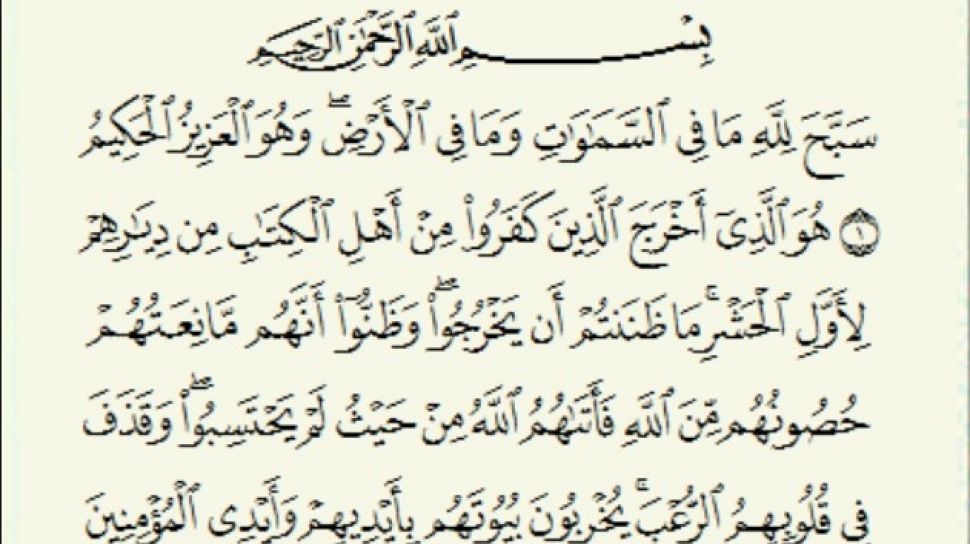 بِسْمِ ٱللَّهِ ٱلرَّحْمَٰنِ ٱلرَّحِيمِ
سَبَّحَ لِلَّهِ مَا فِى ٱلسَّمَٰوَٰتِ وَمَا فِى ٱلْأَرْضِ ۖ وَهُوَ ٱلْعَزِيزُ ٱلْحَكِيمُ
۝١ هُوَ ٱلَّذِىٓ أَخْرَجَ ٱلَّذِينَ كَفَرُوا۟ مِنْ أَهْلِ ٱلْكِتَٰبِ مِن دِيَٰرِهِمْ
لِأَوَّلِ ٱلْحَشْرِ ۚ مَا ظَنَنتُمْ أَن يَخْرُجُوا۟ ۖ وَظَنُّوٓا۟ أَنَّهُم مَّانِعَتُهُمْ
حُصُونُهُم مِّنَ ٱللَّهِ فَأَتَىٰهُمُ ٱللَّهُ مِنْ حَيْثُ لَمْ يَحْتَسِبُوا۟ ۖ وَقَذَفَ
فِى قُلُوبِهِمُ ٱلرُّعْبَ ۚ يُخْرِبُونَ بُيُوتَهُم بِأَيْدِيهِمْ وَأَيْدِى ٱلْمُؤْمِنِينَ